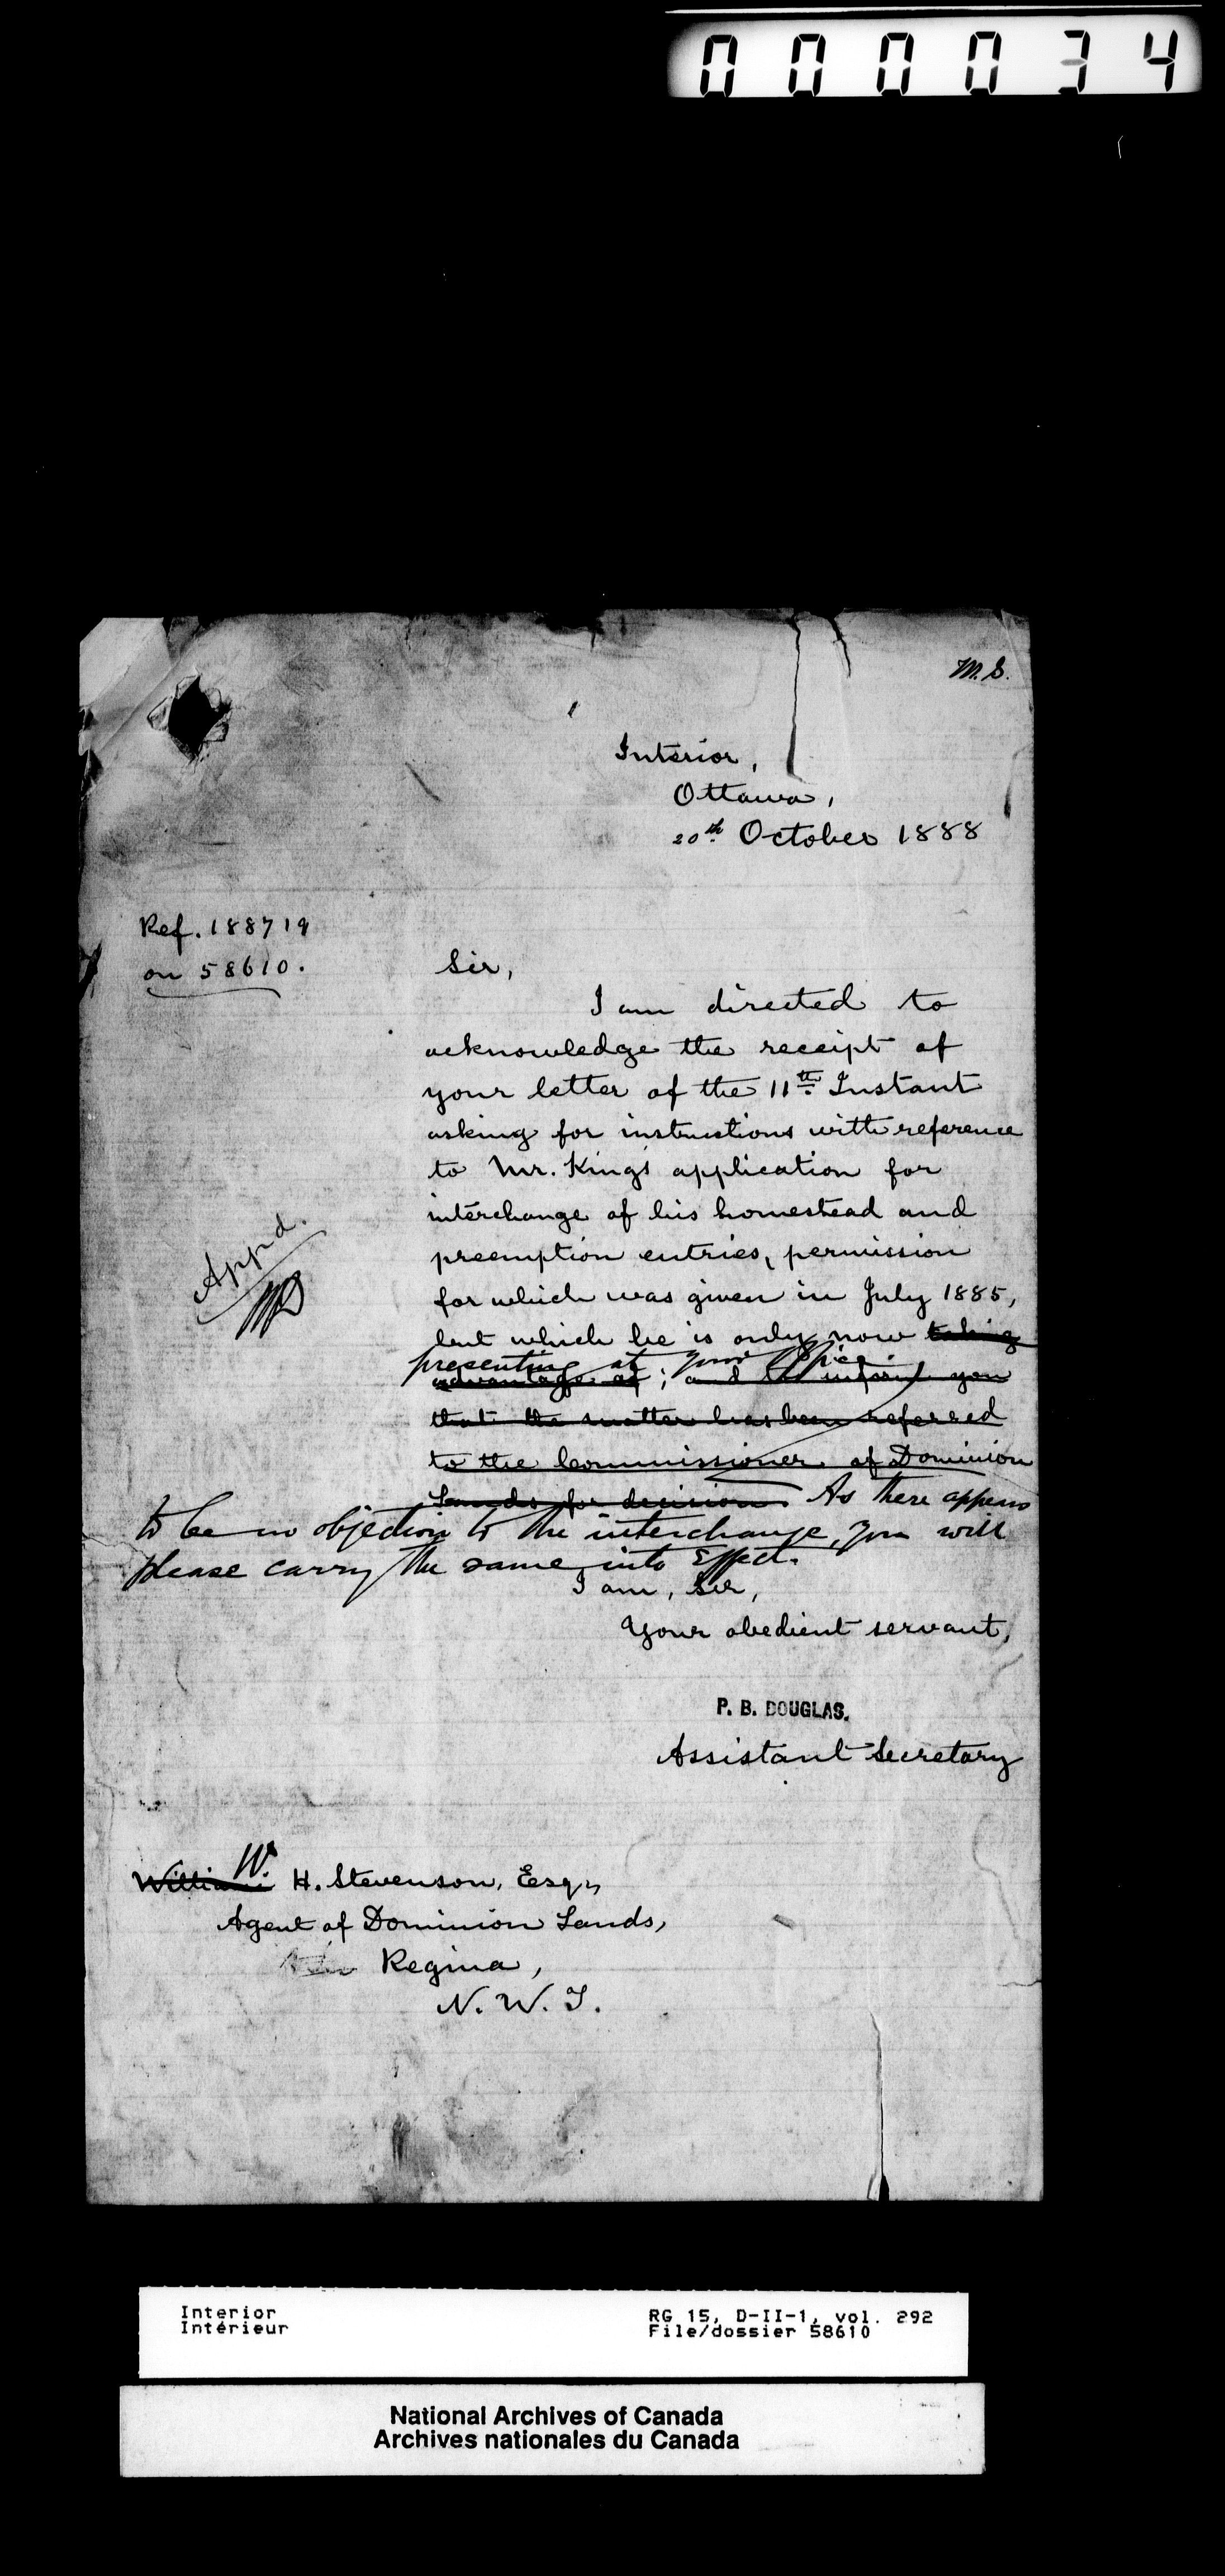 000034
M.S.
Interior,
Ottawa,
20th October 1888
Ref. 188719
on 58610.
Sir,
I am directed to
acknowledge the receipt of
your letter of the 11th Instant
asking for instructions with reference
to Mr. King's application for
interchange of his homestead and
preemption entries, permission
for which was given in July 1885,
but which he is only now taking
presenting at your Office.
advantage of; and to inform you
that the matter has been referred
to the Commissioner of Dominion
Lands for decision. As there appears
to be no objection to the interchange, you will
please carry the same into Effect.
I am, Sir,
Your obedient servant,
App'd.
P. B. DOUGLAS.
Assistant Secretary
W.
William H. Stevenson, Esq.,
Agent of Dominion Lands,
Regina,
N. W. T.
Interior
Intérieur
RG 15, D-II-1, vol. 292
File/dossier 58610
National Archives of Canada
Archives nationales du Canada